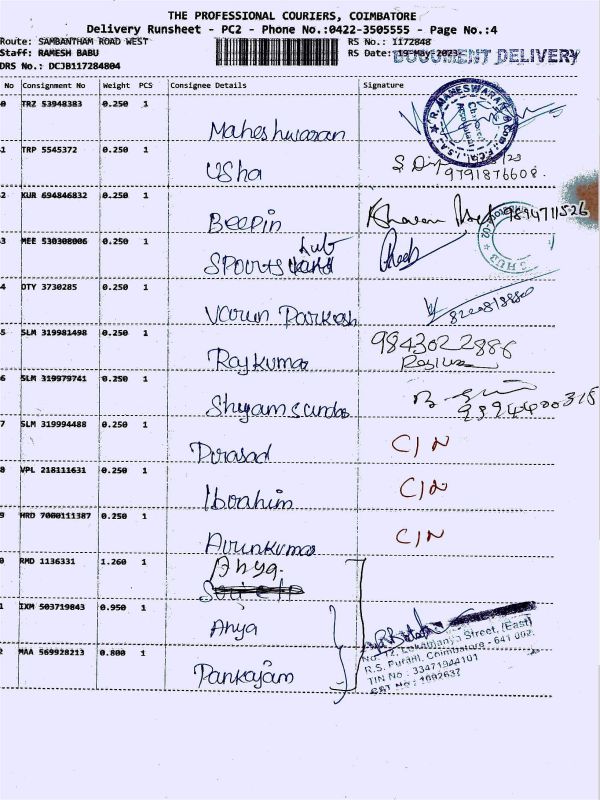 THE PROFESSIONAL COURIERS, COIMBATORE
Delivery Runsheet - PC2 - Phone No.:0422-3505555 - Page No.:4
Route: SAMBANTHAM ROAD WEST RS No.: I172848
Staff: RAMESH BABU RS Date: 19-May-2023 DOCUMENT DELIVERY
DRS No.: DCJB117284804
No Consignment No Weight PCS Consignee Details Signature
0 TRZ 53948383 0.250 1
Maheshwaran
1 TRP 5545372 0.250 1
Usha 9791876608.
2 KUR 694846832 0.250 1
Beepin 9894711526
3 MEE 530308006 0.250 1
Sports Hub
4 OTY 3730285 0.250 1
Varun Parkash
5 SLM 319981498 0.250 1
9843022886
Rajkumar
6 SLM 319979741 0.250 1
Shyam sundar
7 SLM 319994488 0.250 1
Pirasad C/N
8 VPL 218111631 0.250 1
Ibrahim C/N
9 HRD 7000111387 0.250 1
Arunkumar C/N
0 RMD 1136331 1.260 1
Ahya.
1 IXM 503719843 0.950 1
Ahya
No. 12, Lokamanya Street, (East)
R.S. Puram, Coimbatore - 641 002.
2 MAA 569928213 0.800 1
TIN No : 33471944101
Pankajam
CST No : 1092637